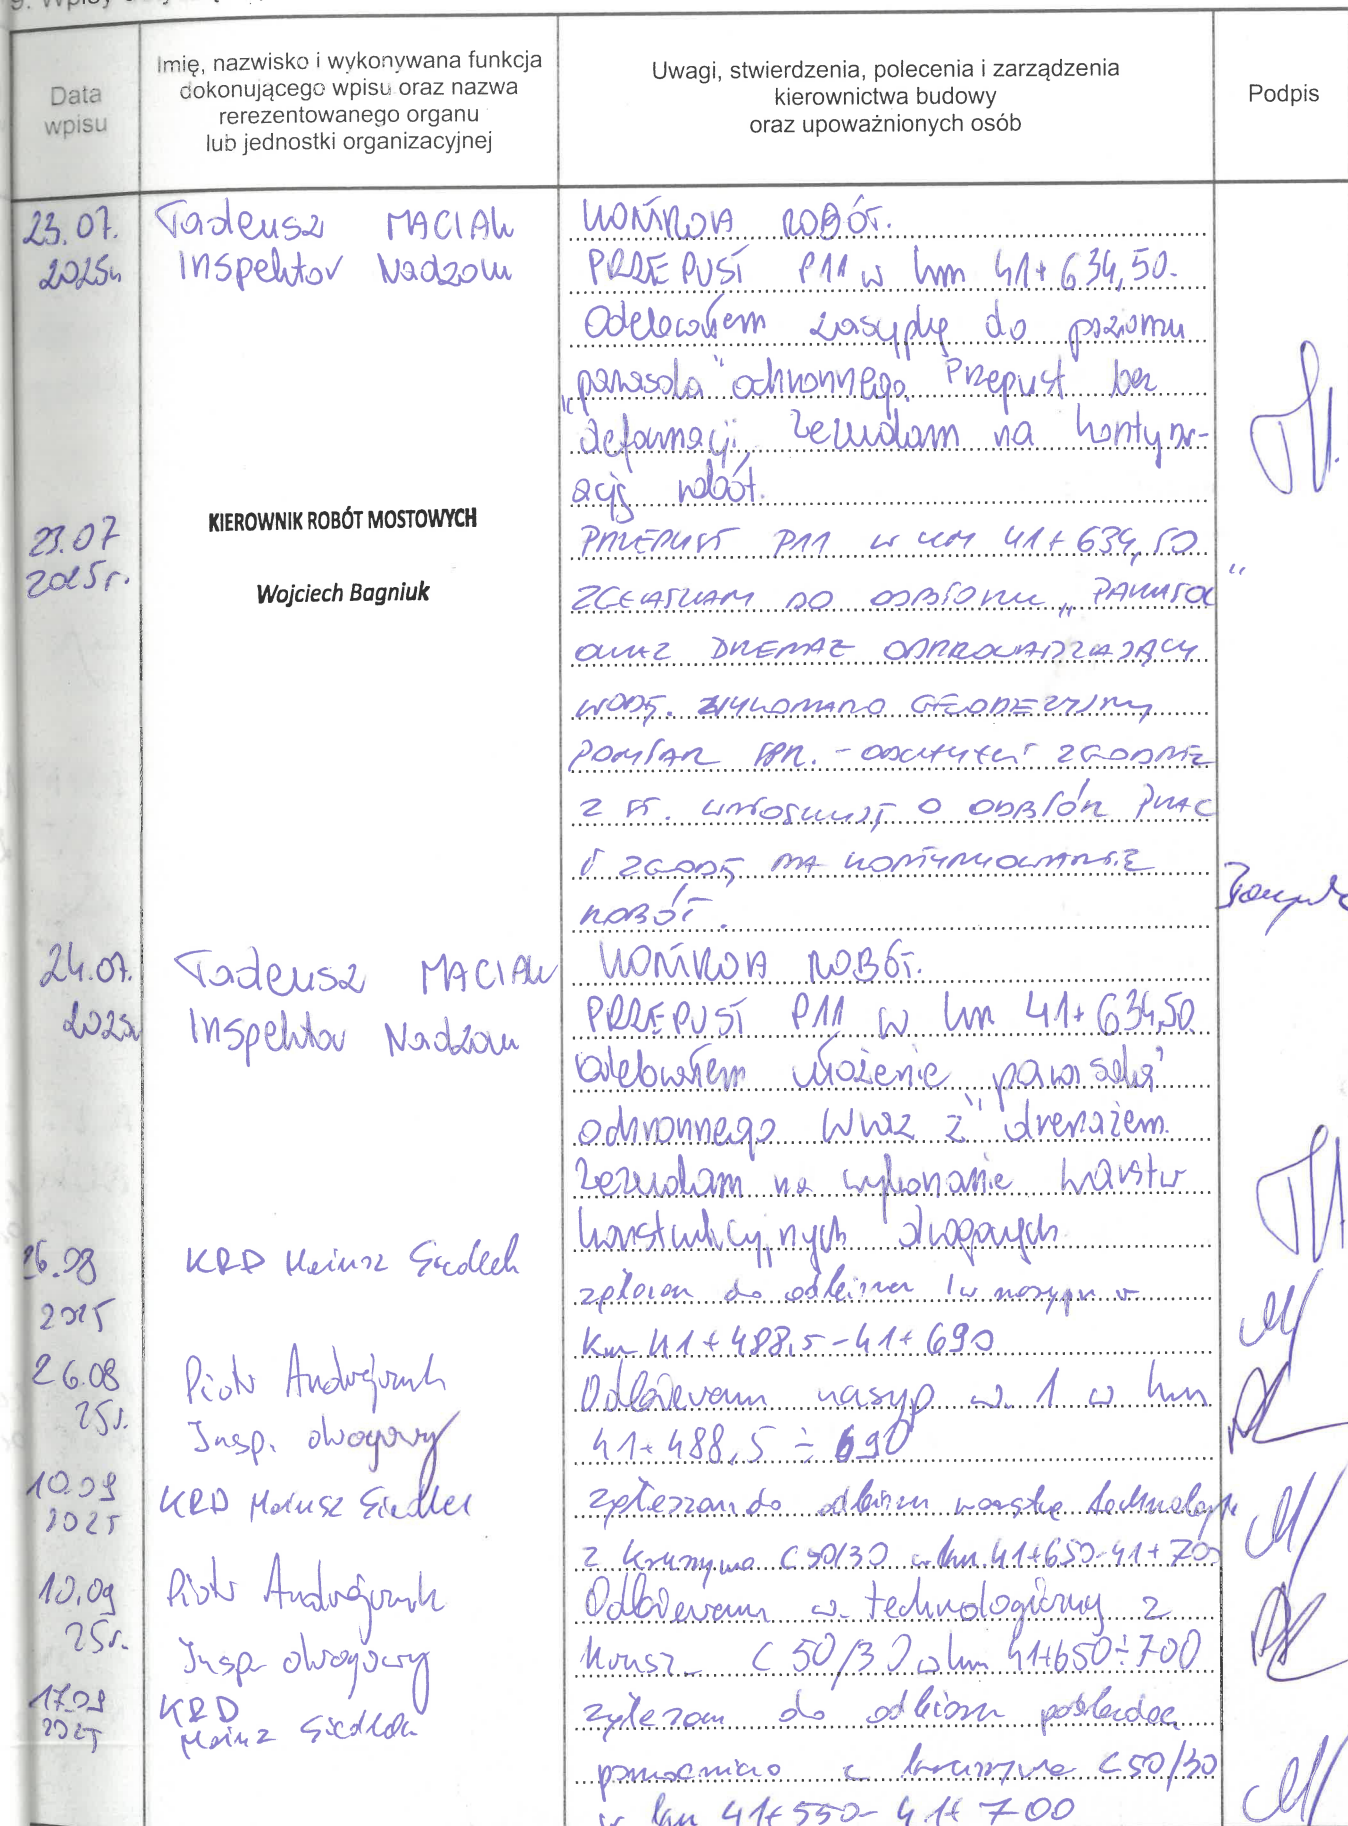 9. Wpisy
Data
wpisu
Imię, nazwisko i wykonywana funkcja
dokonującego wpisu oraz nazwa
rerezentowanego organu
lub jednostki organizacyjnej
Uwagi, stwierdzenia, polecenia i zarządzenia
kierownictwa budowy
oraz upoważnionych osób
Podpis
23.07.
2025r
Tadeusz MACIAK
Inspektor Nadzoru
KONTROLA ROBÓT.
PRZEPUST P11 w km 41+634,50.
Odebrałem zasypkę do poziomu
„parasola" ochronnego. Przepust bez
deformacji. Zezwalam na kontynu-
ację robót.
23.07
2025r.
KIEROWNIK ROBÓT MOSTOWYCH
Wojciech Bagniuk
PRZEPUST P11 w KM 41+634,50
ZGŁASZAM DO ODBIORU „PARASOL"
ORAZ DRENAŻ ODPROWADZAJĄCY
WODĘ. WYKONANO GEODEZYJNY
POMIAR SPR. - ODCHYŁKI ZGODNIE
Z ST. WNIOSKUJĘ O ODBIÓR PRAC
I ZGODĘ NA KONTYNUOWANIE
ROBÓT.
24.07.
2025r
Tadeusz MACIAK
Inspektor Nadzoru
KONTROLA ROBÓT.
PRZEPUST P11 w km 41+634,50
Odebrałem ułożenie „parasola"
ochronnego wraz z drenażem.
Zezwalam na wykonanie warstw
konstrukcyjnych drogowych.
26.08
2025
KRD Mariusz Siedlecki
zgłaszam do odbioru 1w nasypu w
km 41+488,5-41+690
26.08
25r.
Piotr Andrejczuk
Insp. drogowy
Odbieram nasyp w. 1 w km
41+488,5÷690
10.09
2025
KRD Mariusz Siedlecki
zgłaszam do odbioru warstwę technolog
z kruszywa C50/30 w km 41+650-41+700
10.09
25r.
Piotr Andrejczuk
Insp drogowy
Odbieram w. technologiczną z
krusz. C50/30 w km 41+650÷700
17.09
2025
KRD
Mariusz Siedlecki
zgłaszam do odbioru podbudowę
pomocniczo z kruszywa C50/30
w km 41+550-41+700